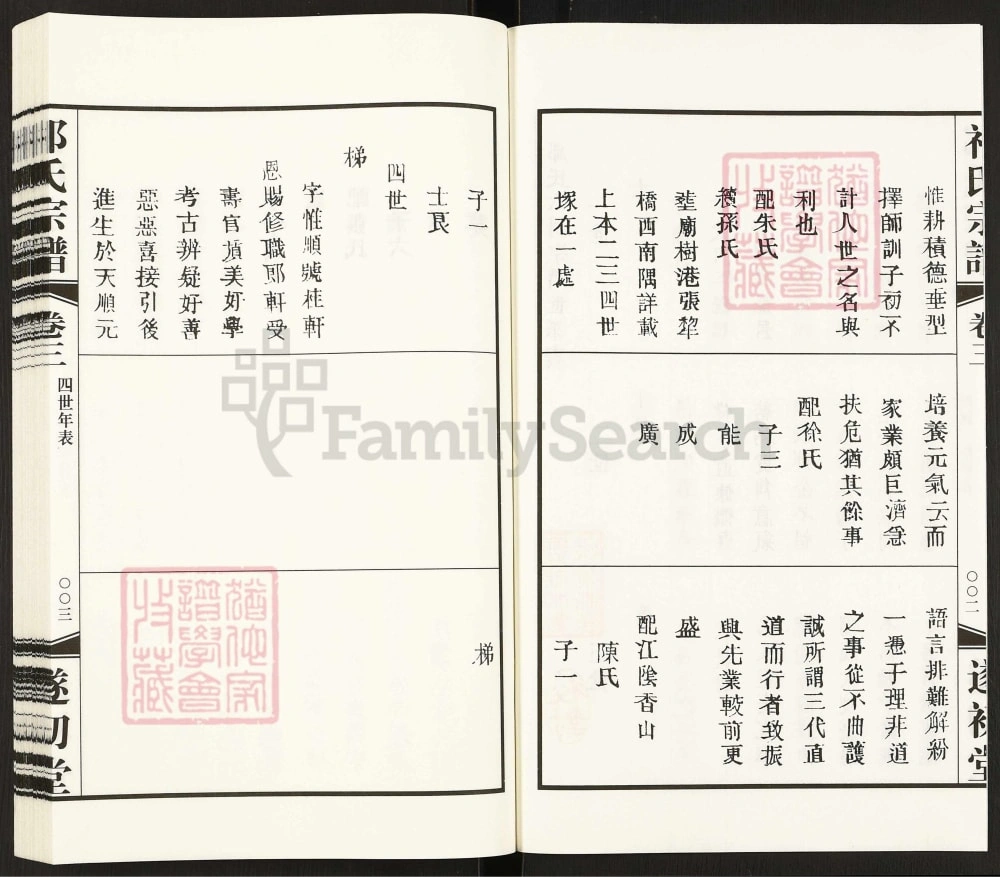 氏宗譜
卷三
〇〇二
遂初堂
惟耕積德垂型
擇師訓子初不
計人世之名與
利也
配朱氏
續孫氏
塟廟樹港張犂
橋西南隅詳載
上本二三四世
塚在一處
培養元氣云而
家業頗巨濟急
扶危猶其餘事
配徐氏
子三
能
成
廣
語言排難解紛
一憑于理非道
之事從不曲護
誠所謂三代直
道而行者致振
興先業較前更
盛
配江陰香山
陳氏
子一
子一
士良
四世
梯
字惟順號桂軒
恩賜修職郎軒受
書官墳美好學
考古辨疑好善
惡惡喜接引後
進生於天順元
梯
氏宗譜
卷三
四世年表
〇〇三
遂初堂
猶他家譜學會收藏
猶他家譜學會收藏
FamilySearch